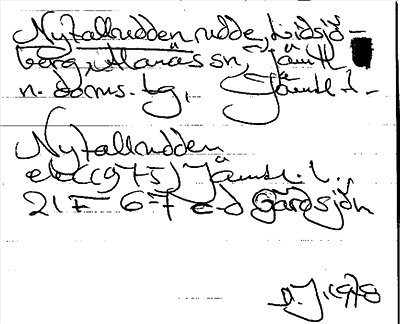 Nytallrudden rudde, Lidsjö-
berg, Alanäs sn, Jämtl
n. doms. tg, Jämtl. l.
Nytallrudden
ek (1975) Jämtl. l.,
21 F 6-7 c-d Gårdsjön
A.J. 1978